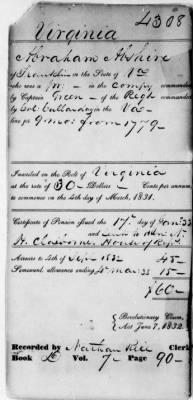 Virginia
4308
Abraham Abshire
of Franklin in the State of Va
who was a in the compy commanded
by Captain Green of the Regt commanded
by Col: Callaway in the Va
line for 9 mos from 1779
Inscribed on the Roll of Virginia
at the rate of 30 Dollars Cents per annum,
to commence on the 4th day of March, 1831.
Certificate of Pension issued the 17th day of Jan 33
and
N. Claiborne House of Reps.
Arrears to 4th of Sep 1832 45
Semi-annual allowance ending 4 Mar 33 15
$60
Revolutionary Claim,
Act June 7, 1832.
Recorded by Nathan Rice Clerk
Book D Vol. 7 Page 90